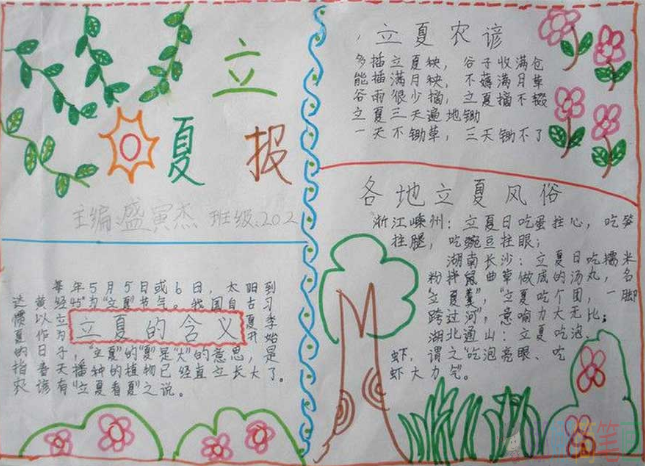 立
夏
报
主编:盛寅杰 班级:202
每年5月5日或6日,太阳到
达黄经45°为"立夏"节气。我国自古习
惯以立
立夏的含义
夏开始
"立夏"的"夏"是"大"的意思,是
指春天播种的植物已经直立长大了。
农谚有"立夏看夏"之说。
立夏农谚
多插立夏秧,谷子收满仓
能插满月秧,不薅满月草
谷雨很少摘,立夏摘不辍
立夏三天遍地锄
一天不锄草,三天锄不了
各地立夏风俗
浙江嵊州:立夏日吃蛋拄心,吃笋
拄腿,吃豌豆拄眼;
湖南长沙:立夏日吃糯米
粉拌鼠曲草做成的汤丸,名
立夏羹","立夏吃个团,一脚
跨过河",意喻力大无比;
湖北通山:立夏吃泡、
虾,谓之"吃泡亮眼、吃
虾大力气。